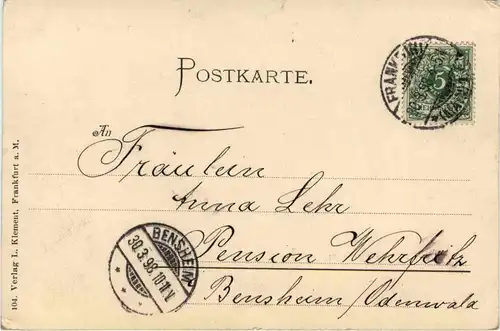 POSTKARTE.
An
Fräulein
Anna Lehr
Pension Wehrfritz
Bensheim/Odenwald
BENSHEIM
30.3.98.10-11.V
FRANKFURT
5
104. Verlag L. Klement, Frankfurt a. M.